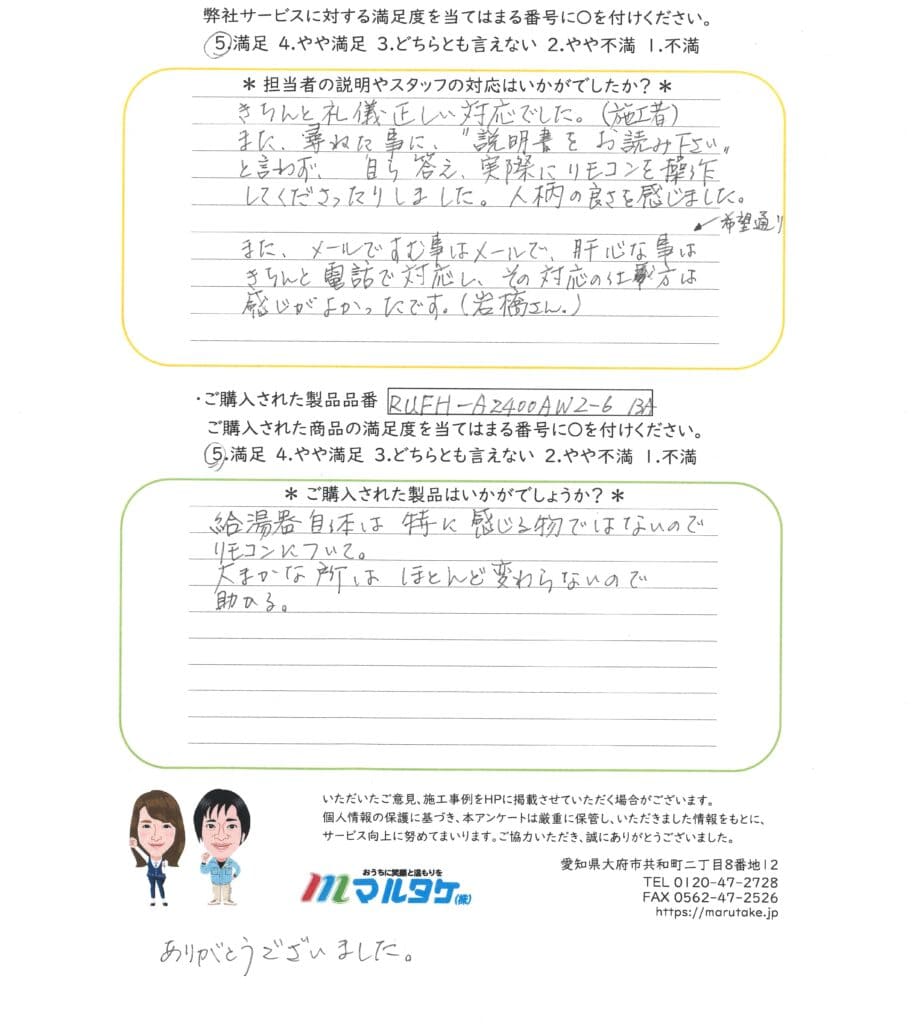 弊社サービスに対する満足度を当てはまる番号に○を付けください。
5.満足 4.やや満足 3.どちらとも言えない 2.やや不満 1.不満
＊ 担当者の説明やスタッフの対応はいかがでしたか？ ＊
きちんと礼儀正しい対応でした。(施工者)
また、尋ねた事に、"説明書を お読み下さい"
と言わず、自ら答え、実際にリモコンを操作
してくださったりしました。人柄の良さを感じました。
希望通り
また、メールですむ事はメールで、肝心な事は
きちんと電話で対応し、その対応の仕方は
感じがよかったです。(岩橋さん。)
・ご購入された製品品番 RUFH-A2400AW2-6 13A
ご購入された商品の満足度を当てはまる番号に○を付けください。
5.満足 4.やや満足 3.どちらとも言えない 2.やや不満 1.不満
＊ ご購入された製品はいかがでしょうか？ ＊
給湯器自体は 特に感じる物ではないので
リモコンについて。
大まかな所は ほとんど変わらないので
助かる。
いただいたご意見、施工事例をHPに掲載させていただく場合がございます。
個人情報の保護に基づき、本アンケートは厳重に保管し、いただきました情報をもとに、
サービス向上に努めてまいります。ご協力いただき、誠にありがとうございました。
おうちに笑顔と温もりを
マルタケ(株)
愛知県大府市共和町二丁目8番地12
TEL 0120-47-2728
FAX 0562-47-2526
https://marutake.jp
ありがとうございました。